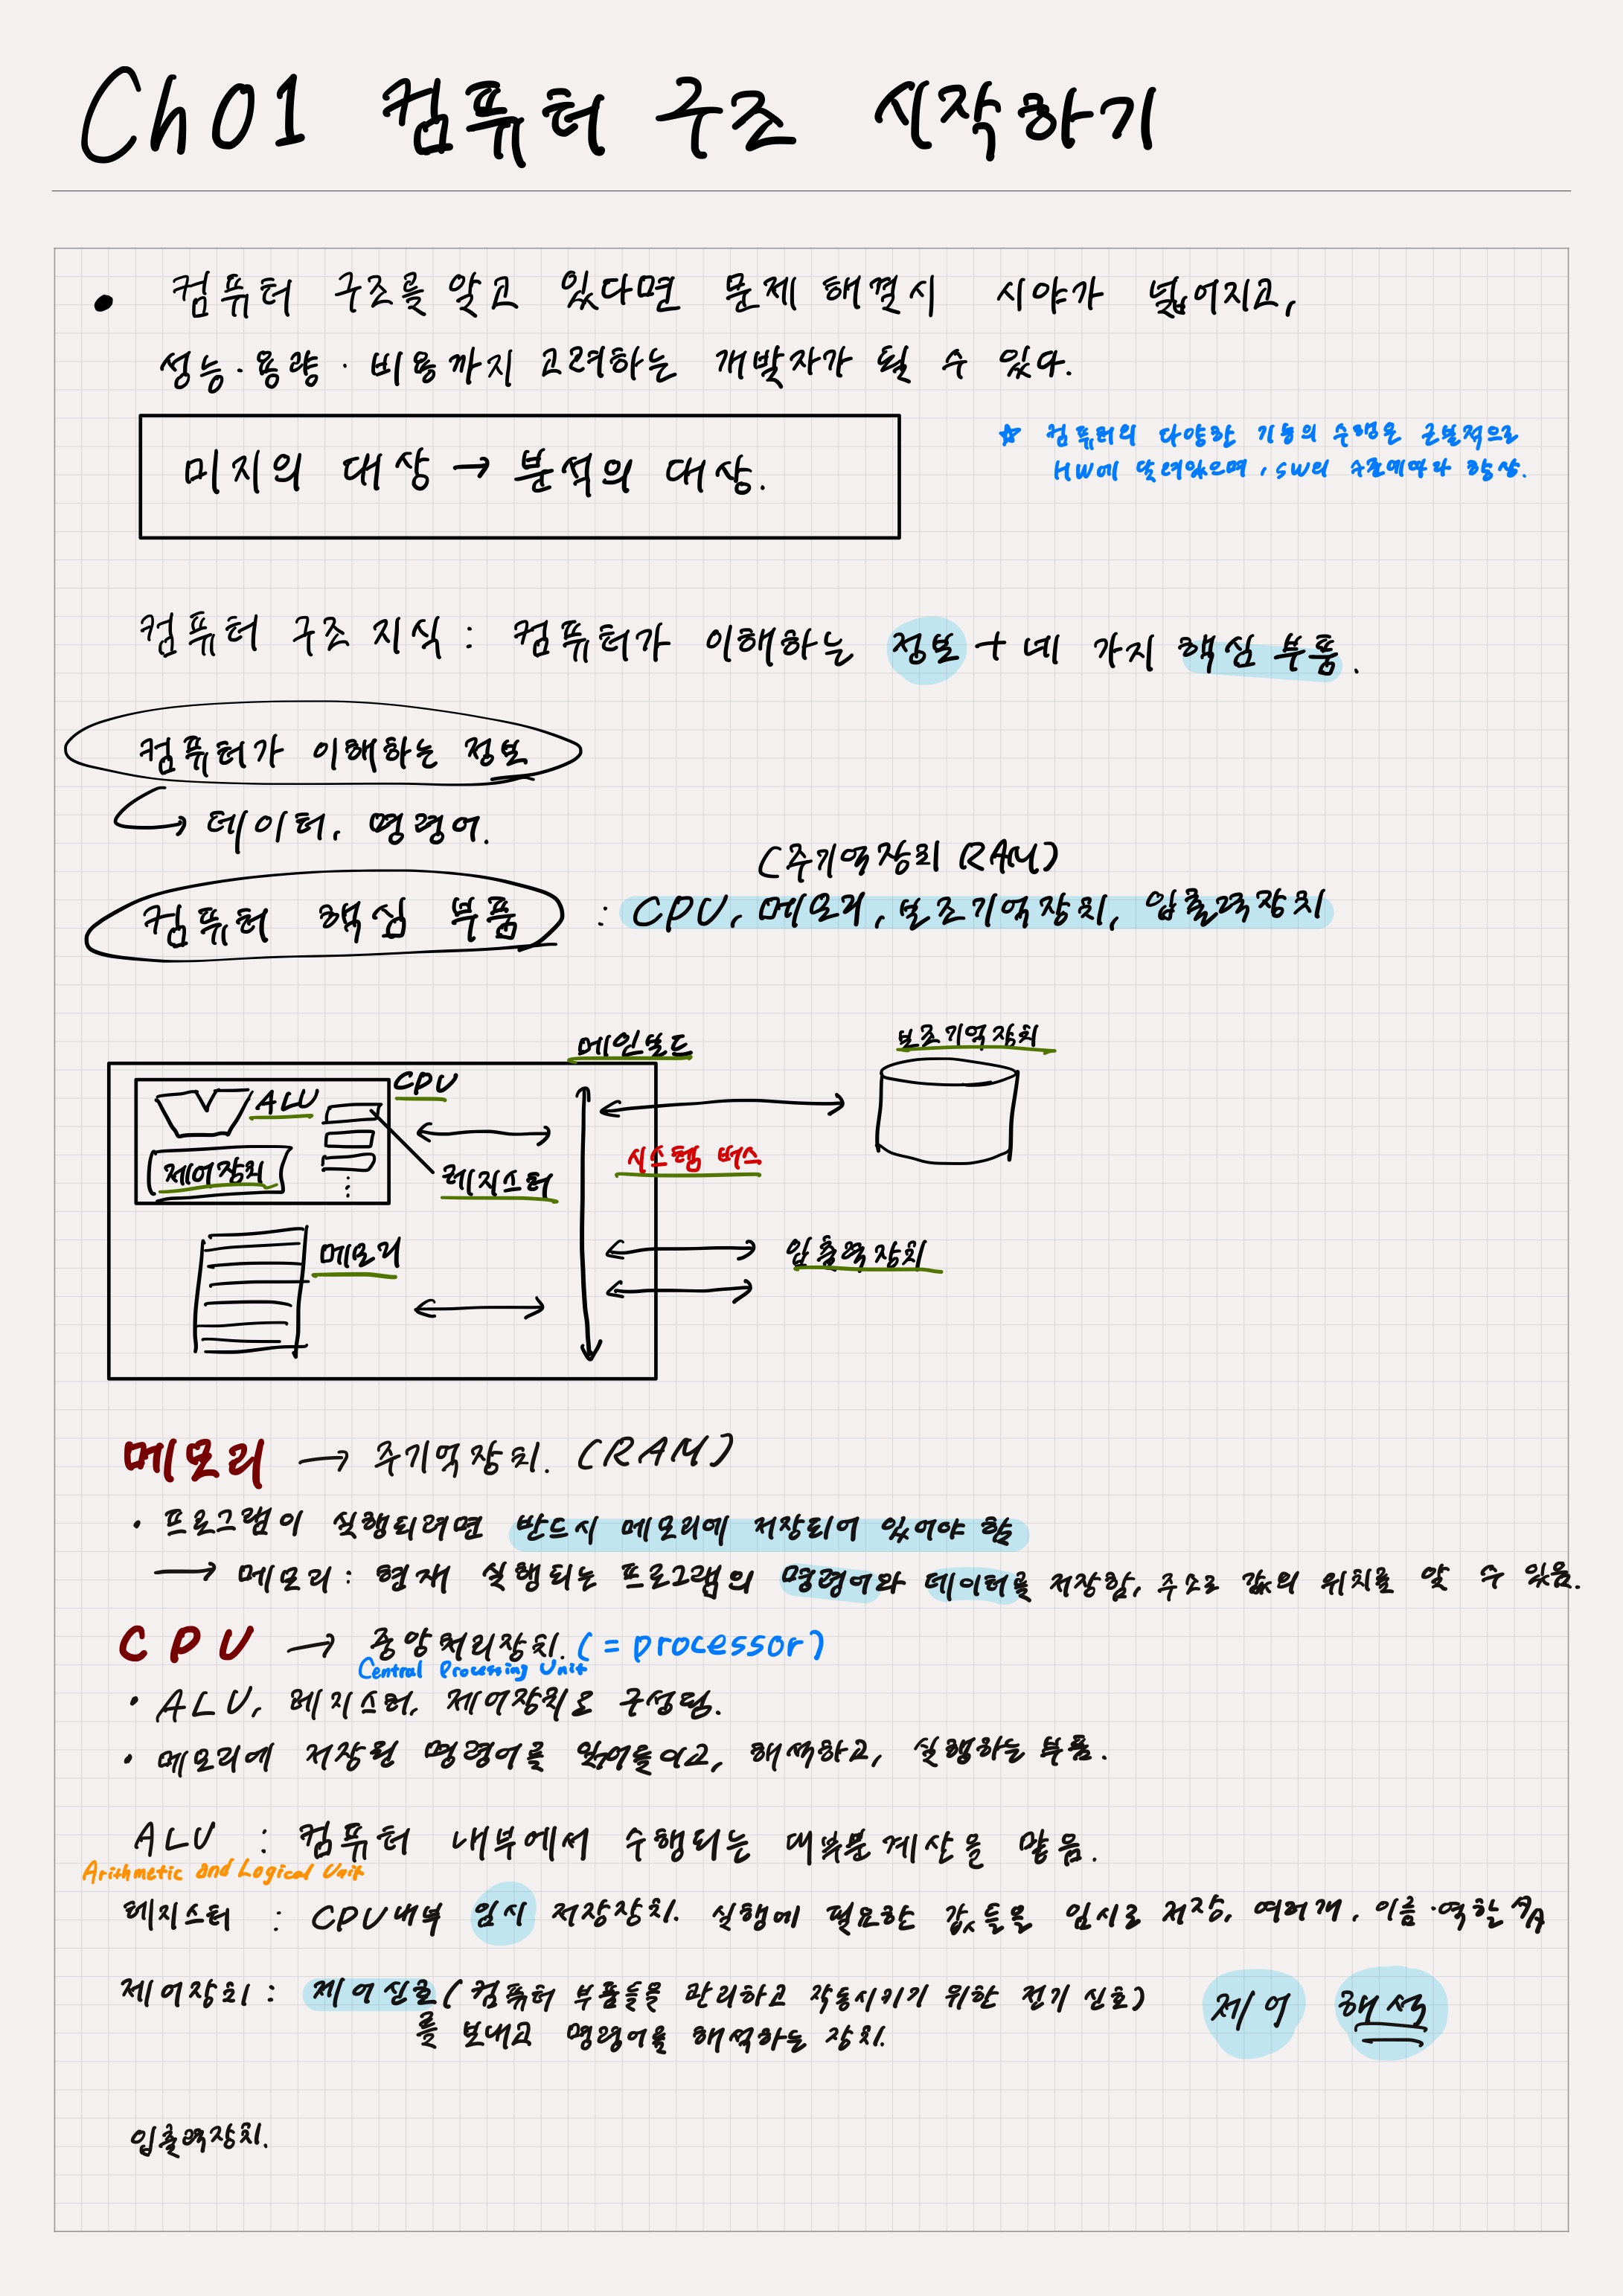 Ch01 컴퓨터 구조 시작하기
• 컴퓨터 구조를 알고 있다면 문제 해결시 시야가 넓어지고,
성능·용량·비용까지 고려하는 개발자가 될 수 있다.
미지의 대상 → 분석의 대상.
☆ 컴퓨터의 다양한 기능의 수행은 근본적으로
HW에 달려있으며, SW의 수준에따라 향상.
컴퓨터 구조 지식 : 컴퓨터가 이해하는 정보 + 네 가지 핵심 부품.
컴퓨터가 이해하는 정보
→ 데이터, 명령어.
(주기억장치 RAM)
컴퓨터 핵심 부품 : CPU, 메모리, 보조기억장치, 입출력장치
메인보드
보조기억장치
CPU
ALU
제어장치
레지스터
시스템 버스
메모리
입출력장치
메모리 → 주기억장치. (RAM)
· 프로그램이 실행되려면 반드시 메모리에 저장되어 있어야 함
→ 메모리 : 현재 실행되는 프로그램의 명령어와 데이터를 저장함, 주소로 값의 위치를 알 수 있음.
CPU → 중앙처리장치. (= processor)
Central Processing Unit
· ALU, 레지스터, 제어장치로 구성됨.
· 메모리에 저장된 명령어를 읽어들이고, 해석하고, 실행하는 부품.
ALU : 컴퓨터 내부에서 수행되는 대부분 계산을 맡음.
Arithmetic and Logical Unit
레지스터 : CPU 내부 임시 저장장치. 실행에 필요한 값들을 임시로 저장, 여러개, 이름·역할
제어장치 : 제어신호 (컴퓨터 부품들을 관리하고 작동시키기 위한 전기 신호)
를 보내고 명령어를 해석하는 장치.
제어 해석
입출력장치.